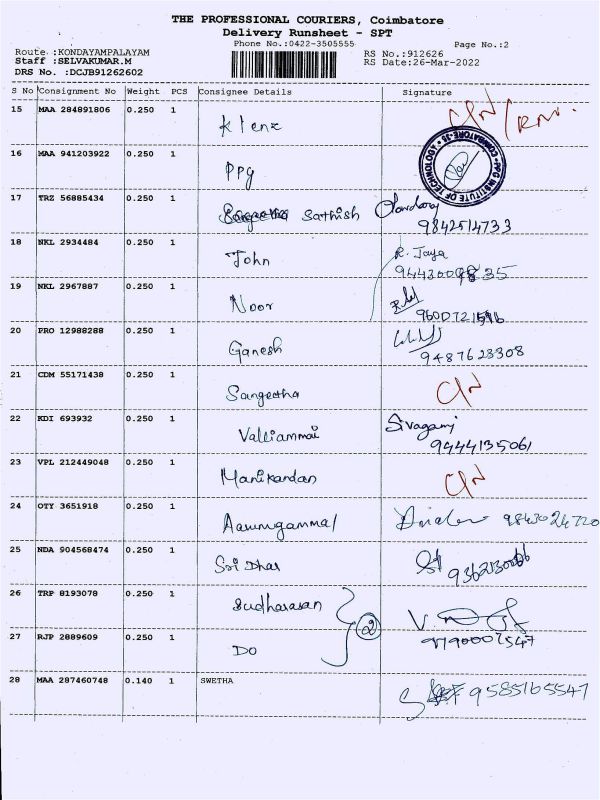 THE PROFESSIONAL COURIERS, Coimbatore
Delivery Runsheet - SPT
Phone No.:0422-3505555 Page No.:2
Route :KONDAYAMPALAYAM RS No.:912626
Staff :SELVAKUMAR.M RS Date:26-Mar-2022
DRS No. :DCJB91262602
S No Consignment No Weight PCS Consignee Details Signature
15 MAA 284891806 0.250 1 Klenz
16 MAA 941203922 0.250 1 PPG
PPG INSTITUTE OF TECHNOLOGY COIMBATORE-35
17 TRZ 56885434 0.250 1 Sathish
9842514733
18 NKL 2934484 0.250 1 John R. Jaya
19 NKL 2967887 0.250 1 Noor
20 PRO 12988288 0.250 1 Ganesh
9487623308
21 CDM 55171438 0.250 1 Sangeetha C/N
22 KDI 693932 0.250 1 Valliammai Sivagami
9444135061
23 VPL 212449048 0.250 1 Manikandan C/N
24 OTY 3651918 0.250 1 Aarumgammal 9843024720
25 NDA 904568474 0.250 1 Sri Dhar
26 TRP 8193078 0.250 1 Sudharasan
2
27 RJP 2889609 0.250 1 DO
28 MAA 287460748 0.140 1 SWETHA 9585165547